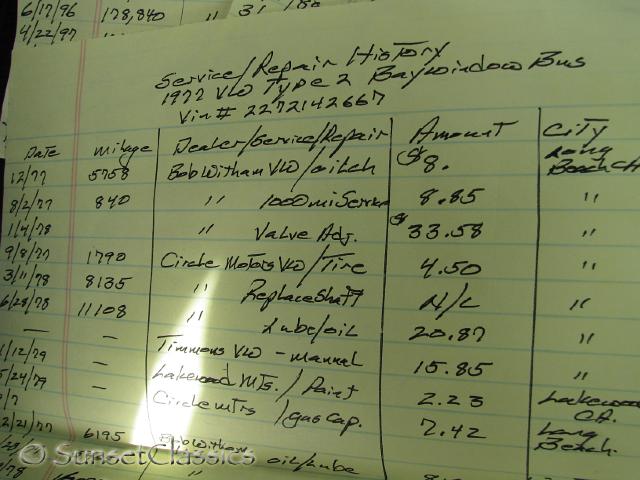 6/17/96 178,840 " 31 180
4/22/97
Service/Repair History
1977 VW Type 2 Baywindow Bus
Vin# 2272142667
Date Milage Dealer/Service/Repair Amount City
12/77 5758 Bob Witham VW/oilch $8. Long Beach CA
8/2/77 840 " 1000miService 8.85 "
1/4/78 " Valve Adj. $33.58 "
9/8/77 1790 Circle Motors VW/Tire 4.50 "
3/11/78 8135 " Replace Shaft N/C "
6/28/78 11108 " Lube/oil 20.87 "
— — Timmons VW - manual 15.85 "
1/12/79 — Lakewood Mts./Paint 2.23 Lakewood CA.
5/24/79 — Circle mtrs /gas cap. 7.42 Long Beach.
2/21/77 6195 Bob Witham
" oil/lube
© SunsetClassics